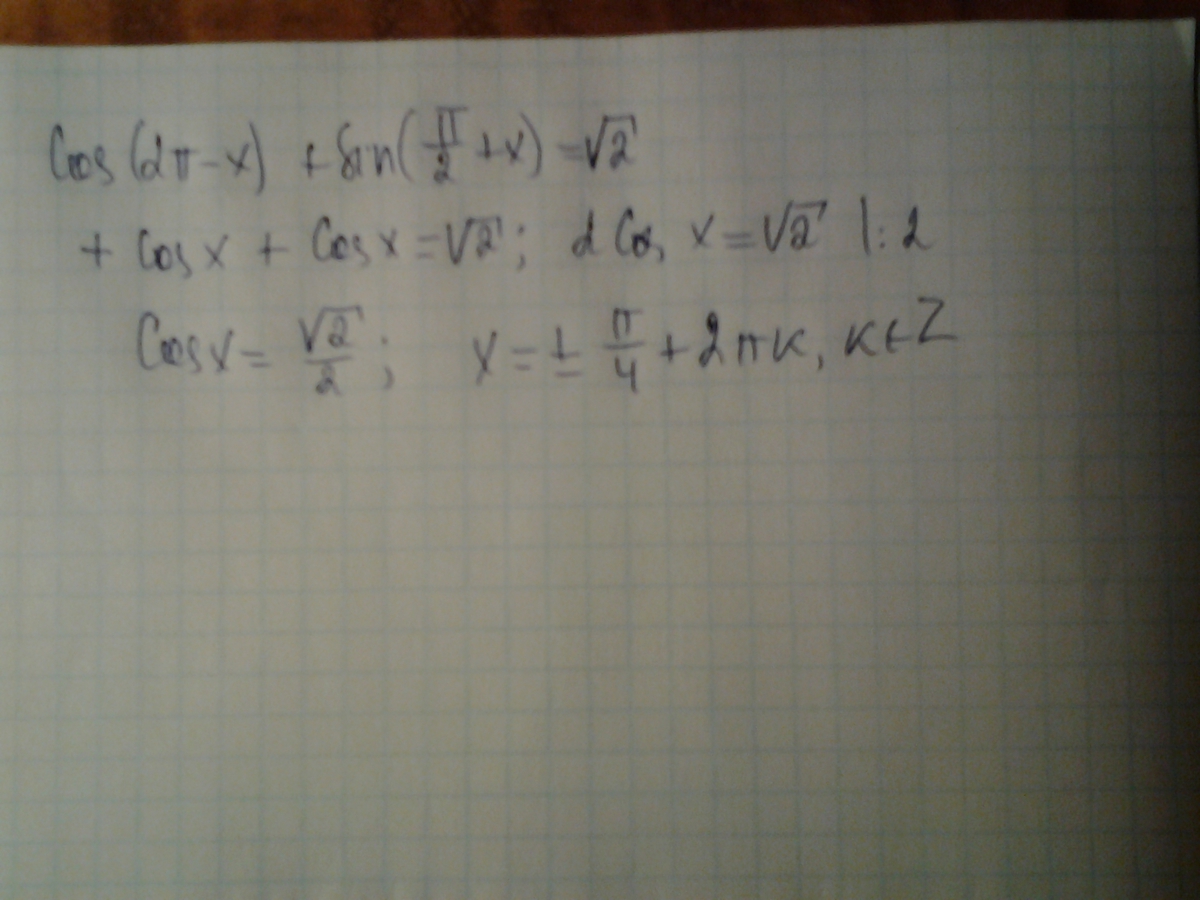 Cos(2π-x) + Sin(π/2 + x) = √2
+ Cos x + Cos x = √2; 2 Cos x = √2 |: 2
Cos x = √2/2; x = ± π/4 + 2πk, k∈Z